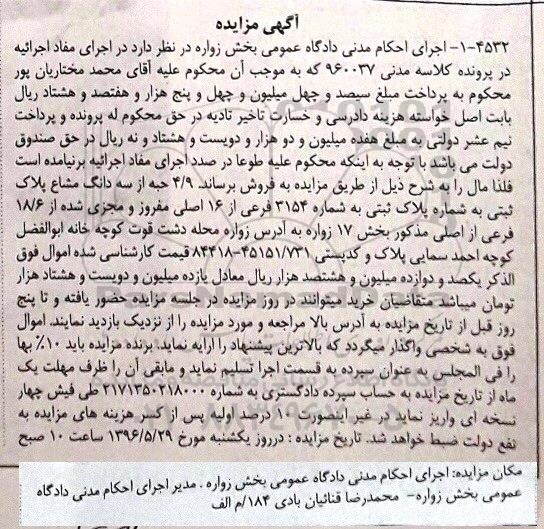 آگهی مزایده
۱-۴۵۳۲- اجرای احکام مدنی دادگاه عمومی بخش زواره در نظر دارد در اجرای مفاد اجرائیه
در پرونده کلاسه مدنی ۹۶۰۰۳۷ که به موجب آن محکوم علیه آقای محمد مختاریان پور
محکوم به پرداخت مبلغ سیصد و چهل میلیون و چهل و پنج هزار و هفتصد و هشتاد ریال
بابت اصل خواسته هزینه دادرسی و خسارت تاخیر تادیه در حق محکوم له پرونده و پرداخت
نیم عشر دولتی به مبلغ هفده میلیون و دو هزار و دویست و هشتاد و نه ریال در حق صندوق
دولت می باشد با توجه به اینکه محکوم علیه طوعا در صدد اجرای مفاد اجرائیه برنیامده است
فلذا مال را به شرح ذیل از طریق مزایده به فروش برساند. ۴/۹ حبه از سه دانگ مشاع پلاک
ثبتی به شماره پلاک ثبتی به شماره ۳۱۵۴ فرعی از ۱۶ اصلی مفروز و مجزی شده از ۱۸/۶
فرعی از اصلی مذکور بخش ۱۷ زواره به آدرس زواره محله دشت قوت کوچه خانه ابوالفضل
کوچه احمد سمایی پلاک و کدپستی ۴۵۱۵۱/۷۳۱-۸۴۴۱۸ قیمت کارشناسی شده اموال فوق
الذکر یکصد و دوازده میلیون و هشتصد هزار ریال معادل یازده میلیون و دویست و هشتاد هزار
تومان میباشد متقاضیان خرید میتوانند در روز مزایده در جلسه مزایده حضور یافته و تا پنج
روز قبل از تاریخ مزایده به آدرس بالا مراجعه و مورد مزایده را از نزدیک بازدید نمایند. اموال
فوق به شخصی واگذار میگردد که بالاترین پیشنهاد را ارایه نماید. برنده مزایده باید ۱۰٪ بها
را فی المجلس به عنوان سپرده به قسمت اجرا تسلیم نماید و مابقی آن را ظرف مهلت یک
ماه از تاریخ مزایده به حساب سپرده دادگستری به شماره ۲۱۷۱۳۵۰۲۱۸۰۰۰ طی فیش چهار
نسخه ای واریز نماید در غیر اینصورت ۱۰ درصد اولیه پس از کسر هزینه های مزایده به
نفع دولت ضبط خواهد شد. تاریخ مزایده : درروز یکشنبه مورخ ۱۳۹۶/۵/۲۹ ساعت ۱۰ صبح
مکان مزایده: اجرای احکام مدنی دادگاه عمومی بخش زواره . مدیر اجرای احکام مدنی دادگاه
عمومی بخش زواره- محمدرضا قنائیان بادی ۱۸۴/م الف